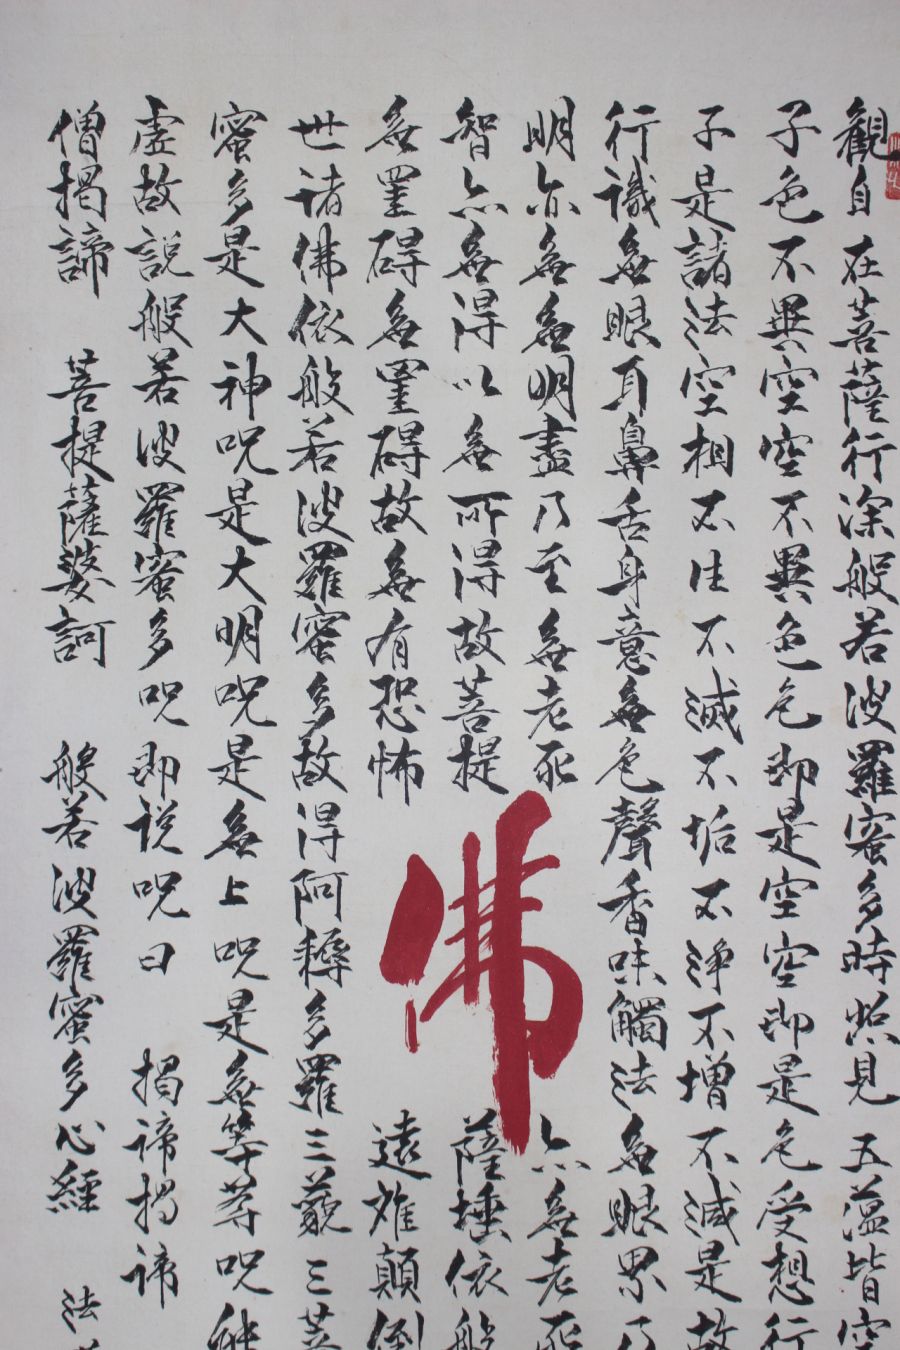 觀自在菩薩行深般若波羅蜜多時照見五蘊皆空
子色不異空空不異色色即是空空即是色受想行
子是諸法空相不生不滅不垢不淨不增不減是故
行識無眼耳鼻舌身意無色聲香味觸法無眼界乃
明亦無無明盡乃至無老死亦無老死
智亦無得以無所得故菩提薩埵依般
佛
無罣碍無罣碍故無有恐怖遠離顛倒
世诸佛依般若波羅蜜多故得阿耨多羅三藐三菩
蜜多是大神呪是大明呪是無上呪是無等等呪能
虛故說般若波羅蜜多呪即说呪曰 揭谛揭谛
僧揭諦 菩提薩婆訶 般若波羅蜜多心經 法